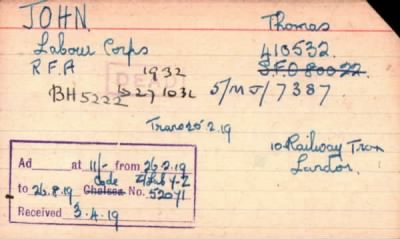 JOHN. Thomas
Labour Corps 410532.
R.F.A 1932 S.F.O 80022.
DEAD
BH 5222 1032 S/M J/7387
Trans 25.2.19
10 Railway Terr
Landor.
Ad at 11/- from 26.2.19
Code
to 26.8.19 Chelsea No. 52071
Received 3.4.19